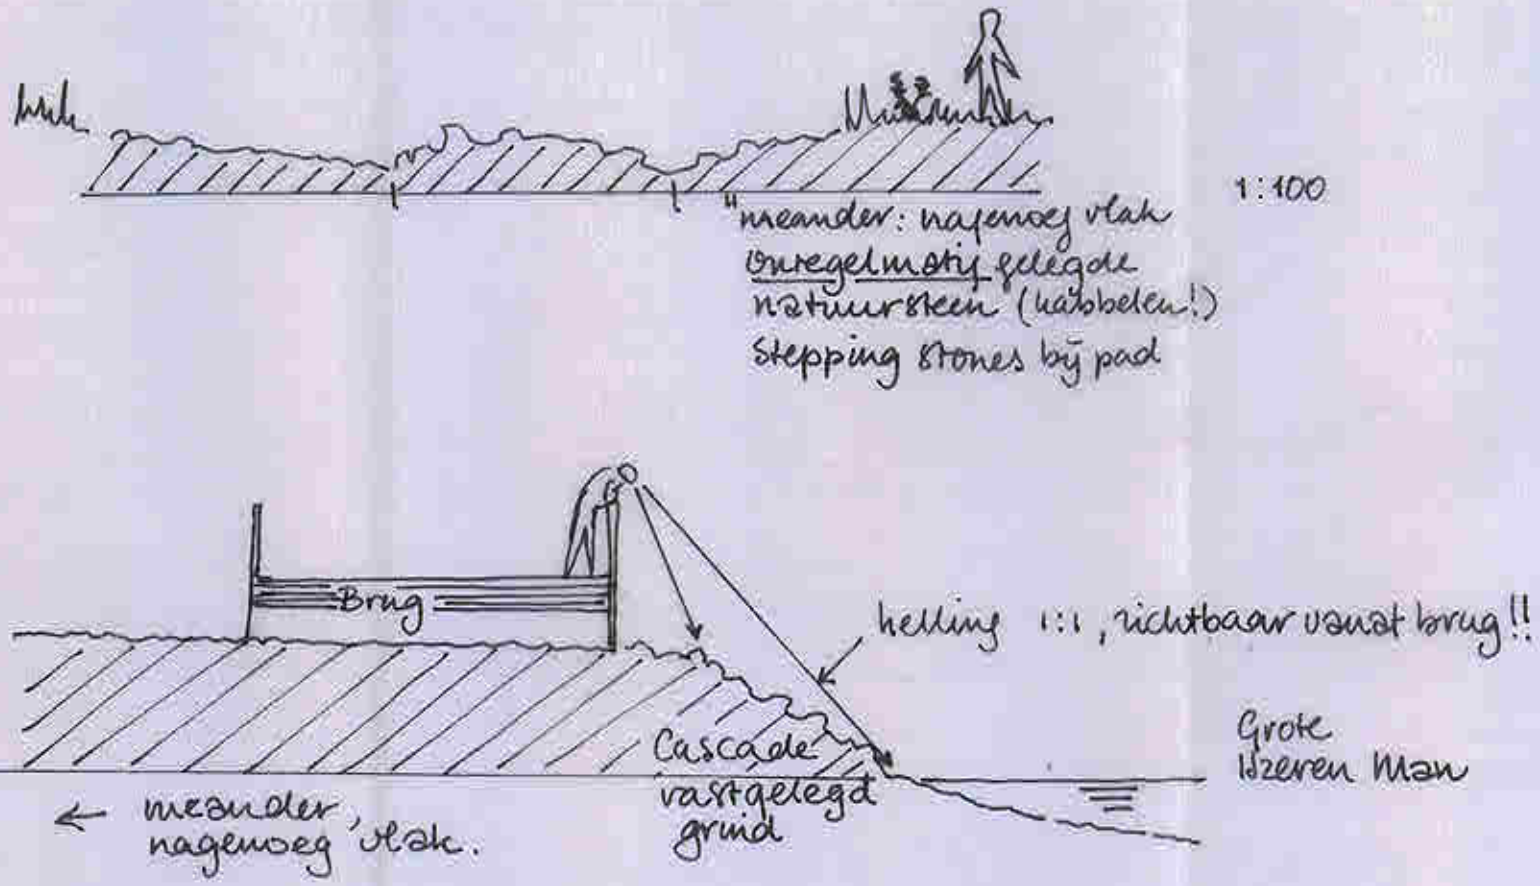 1:100
"meander: nagenoeg vlak
onregelmatig gelegde
natuursteen (kabbelen!)
Stepping stones bij pad
Brug
helling 1:1, zichtbaar vanaf brug!!
Cascade
vastgelegd
grind
Grote
IJzeren Man
← meander,
nagenoeg vlak.